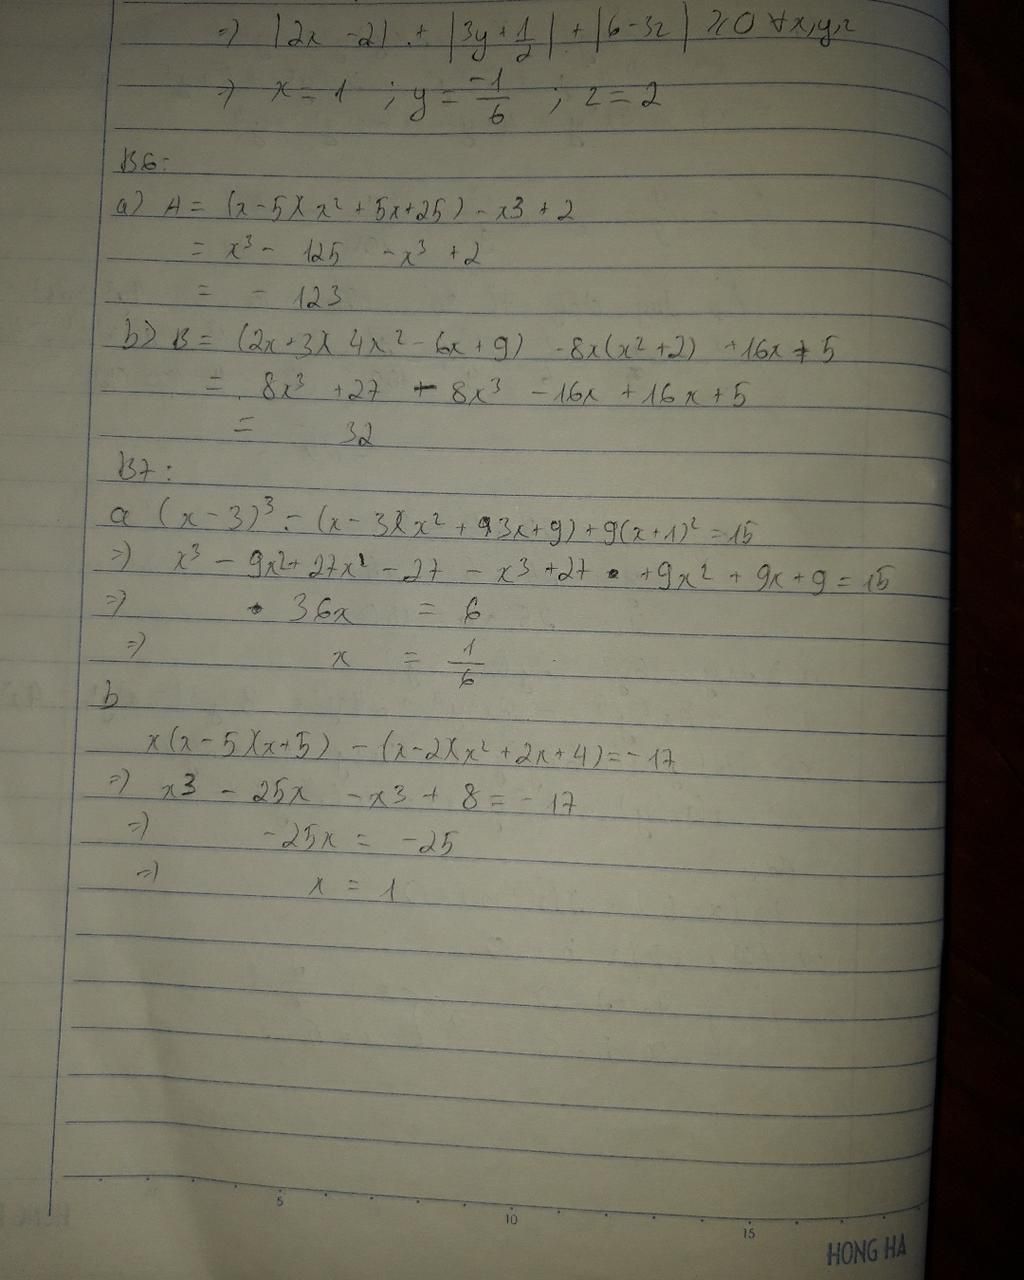 =) |2x - 2| + |3y + 1/2| + |6 - 3z| ≥ 0 ∀x,y,z
=) x = 1 ; y = -1/6 ; z = 2
B6:
a) A = (x - 5)(x² + 5x + 25) - x3 + 2
= x³ - 125 - x³ + 2
= - 123
b) B = (2x + 3)(4x² - 6x + 9) - 8x(x² + 2) + 16x + 5
= 8x³ + 27 - 8x³ - 16x + 16x + 5
= 32
B7:
a (x - 3)³ - (x - 3)(x² + 3x + 9) + 9(x + 1)² = 15
=) x³ - 9x² + 27x - 27 - x³ + 27 + 9x² + 9x + 9 = 15
=) 36x = 6
=) x = 1/6
b
x(x - 5)(x + 5) - (x - 2)(x² + 2x + 4) = - 17
=) x3 - 25x - x3 + 8 = - 17
=) -25x = -25
=) x = 1
5 10 15
HONG HA